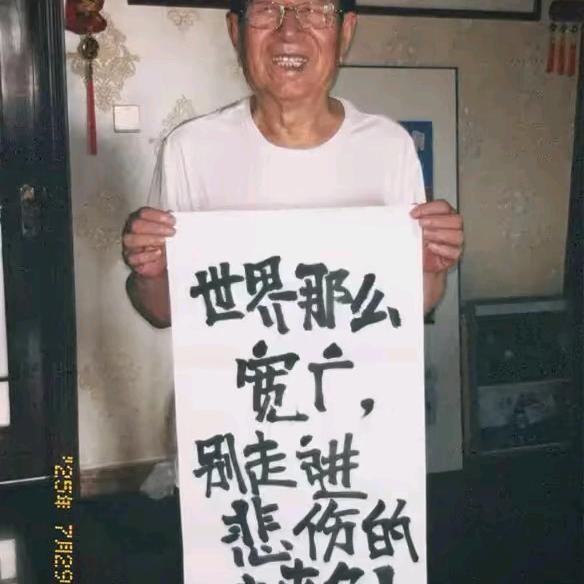 世界那么
宽广，
别走进
悲伤的
'25年 7月29